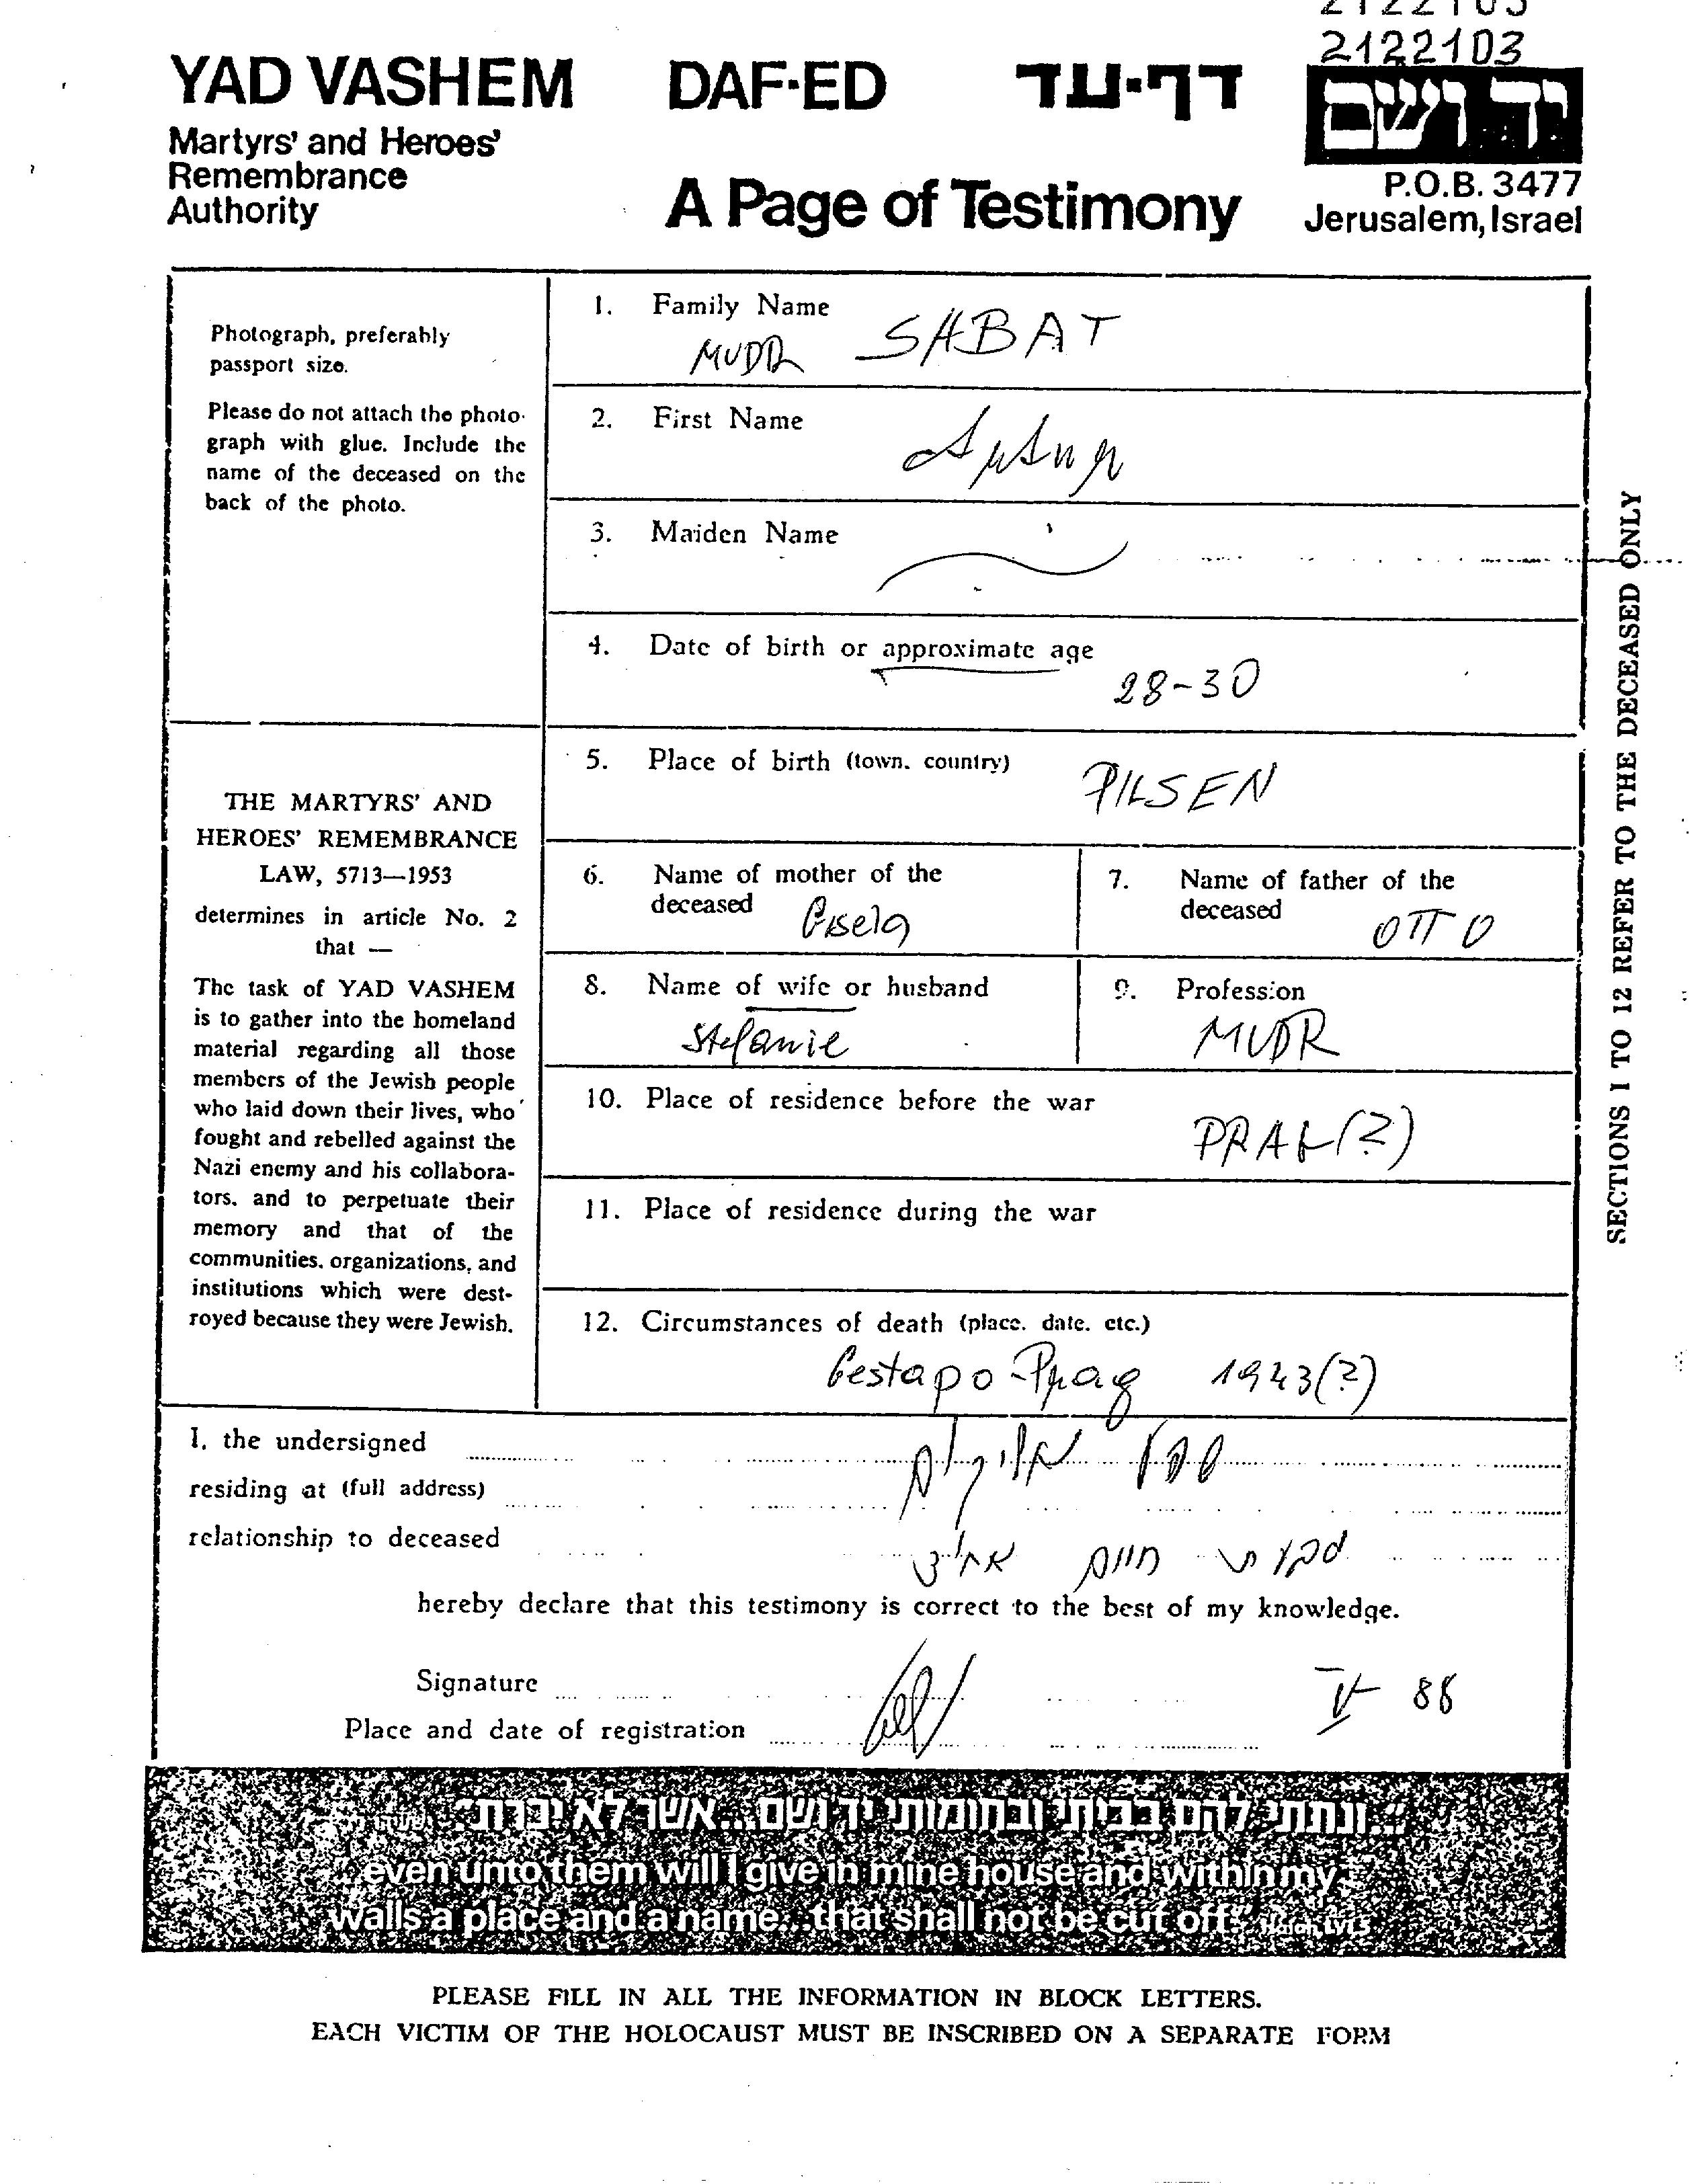 2122103
2122103
YAD VASHEM DAF-ED דף-עד
יד ושם
Martyrs' and Heroes'
Remembrance
Authority
A Page of Testimony
P.O.B. 3477
Jerusalem, Israel
Photograph, preferably
passport size.
Please do not attach the photo-
graph with glue. Include the
name of the deceased on the
back of the photo.
THE MARTYRS' AND
HEROES' REMEMBRANCE
LAW, 5713—1953
determines in article No. 2
that —
The task of YAD VASHEM
is to gather into the homeland
material regarding all those
members of the Jewish people
who laid down their lives, who
fought and rebelled against the
Nazi enemy and his collabora-
tors, and to perpetuate their
memory and that of the
communities, organizations, and
institutions which were dest-
royed because they were Jewish.
1. Family Name
MUDR SABAT
2. First Name
Artur
3. Maiden Name
4. Date of birth or approximate age
28-30
5. Place of birth (town, country)
PILSEN
6. Name of mother of the
deceased Gisela
7. Name of father of the
deceased OTTO
8. Name of wife or husband
Stefanie
9. Profession
MUDR
10. Place of residence before the war
PRAG(?)
11. Place of residence during the war
12. Circumstances of death (place, date, etc.)
Gestapo-Prag 1943(?)
SECTIONS 1 TO 12 REFER TO THE DECEASED ONLY
I, the undersigned
residing at (full address)
relationship to deceased
hereby declare that this testimony is correct to the best of my knowledge.
Signature V 88
Place and date of registration
"...ונתתי להם בביתי ובחומותי יד ושם...אשר לא יכרת"
"...even unto them will I give in mine house and within my
walls a place and a name...that shall not be cut off" Isaiah LVI,5
PLEASE FILL IN ALL THE INFORMATION IN BLOCK LETTERS.
EACH VICTIM OF THE HOLOCAUST MUST BE INSCRIBED ON A SEPARATE FORM